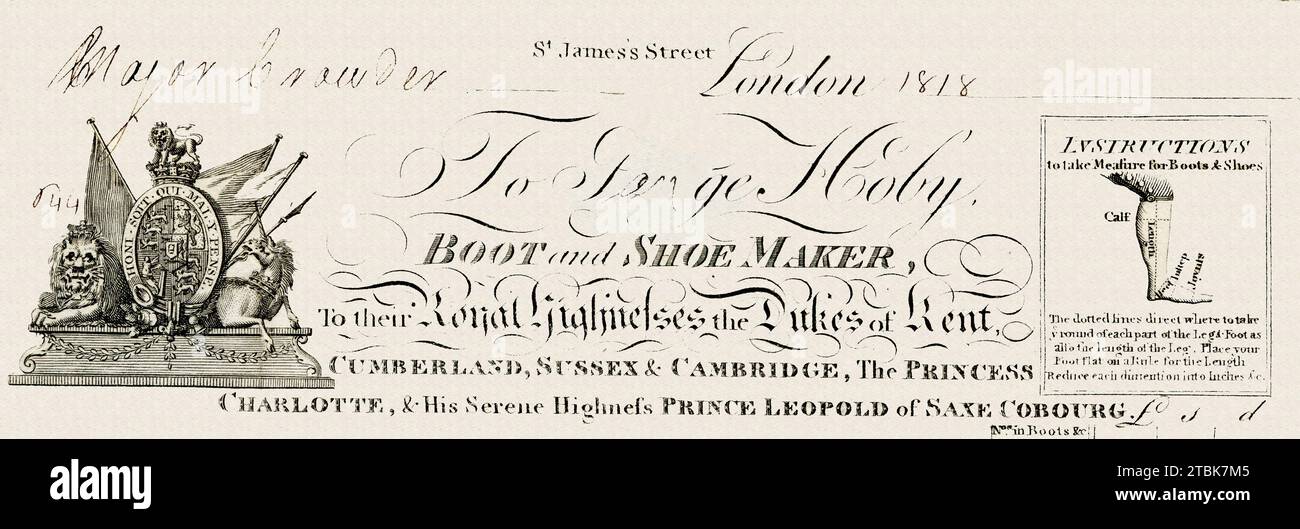 St James's Street
Major Crowder London 1818
To George Hoby,
BOOT and SHOE MAKER,
To their Royal Highneſses the Dukes of Kent,
CUMBERLAND, SUSSEX & CAMBRIDGE, The PRINCESS
CHARLOTTE, & His Serene Highneſs PRINCE LEOPOLD of SAXE COBOURG. £ s d
Nos. in Boots &c
HONI · SOIT · QUI · MAL · Y · PENSE
INSTRUCTIONS
to take Meaſure for Boots & Shoes
Calf
Length
Instep
The dotted lines direct where to take
y round of each part of the Leg & Foot as
alſo the length of the Leg. Place your
Foot flat on a Rule for the Length
Reduce each dimention into Inches &c.
alamy
alamy
Image ID: 2TBK7M5
www.alamy.com